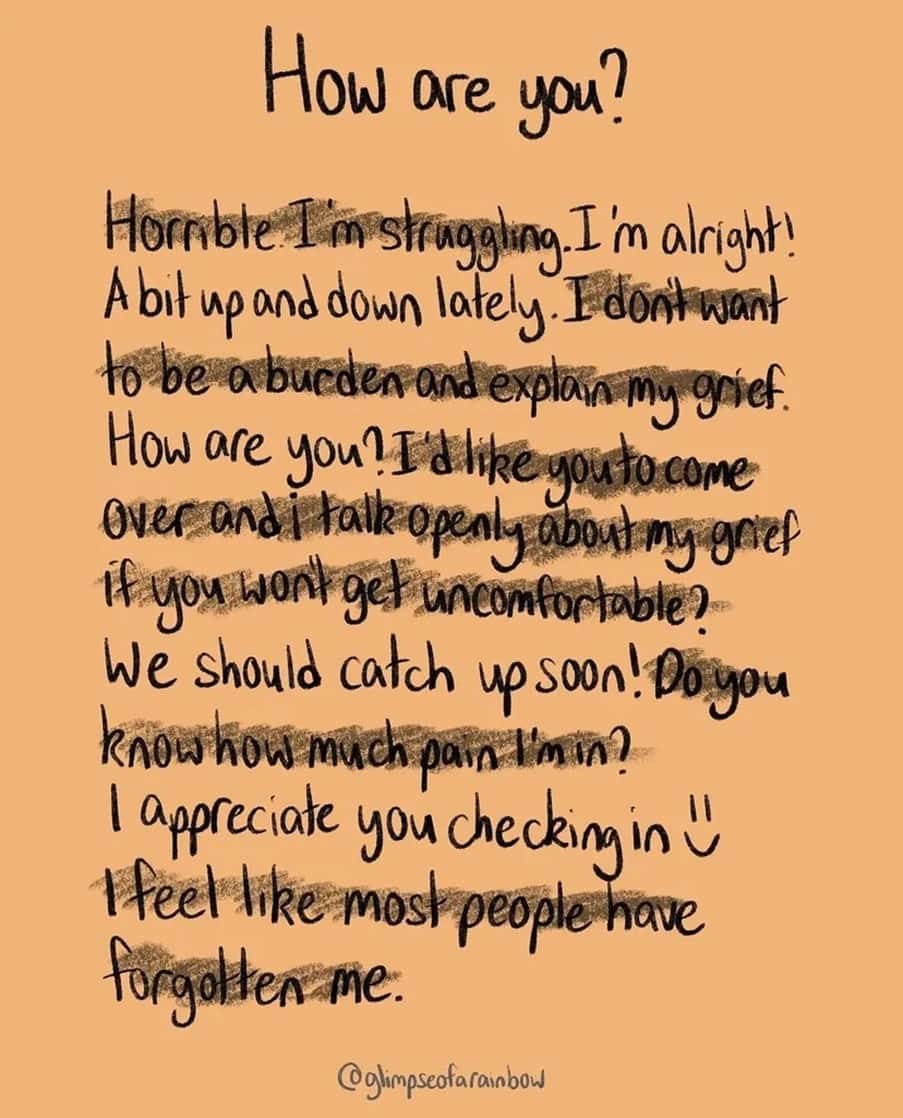 How are you?
Horrible. I'm struggling. I'm alright!
A bit up and down lately. I don't want
to be a burden and explain my grief.
How are you? I'd like you to come
over and i talk openly about my grief
if you won't get uncomfortable?
We should catch up soon! Do you
know how much pain I'm in?
I appreciate you checking in
I feel like most people have
forgotten me.
@glimpseofarainbow